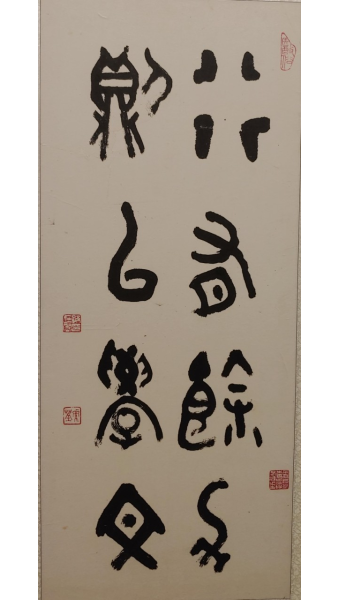 行有餘力
則以學文